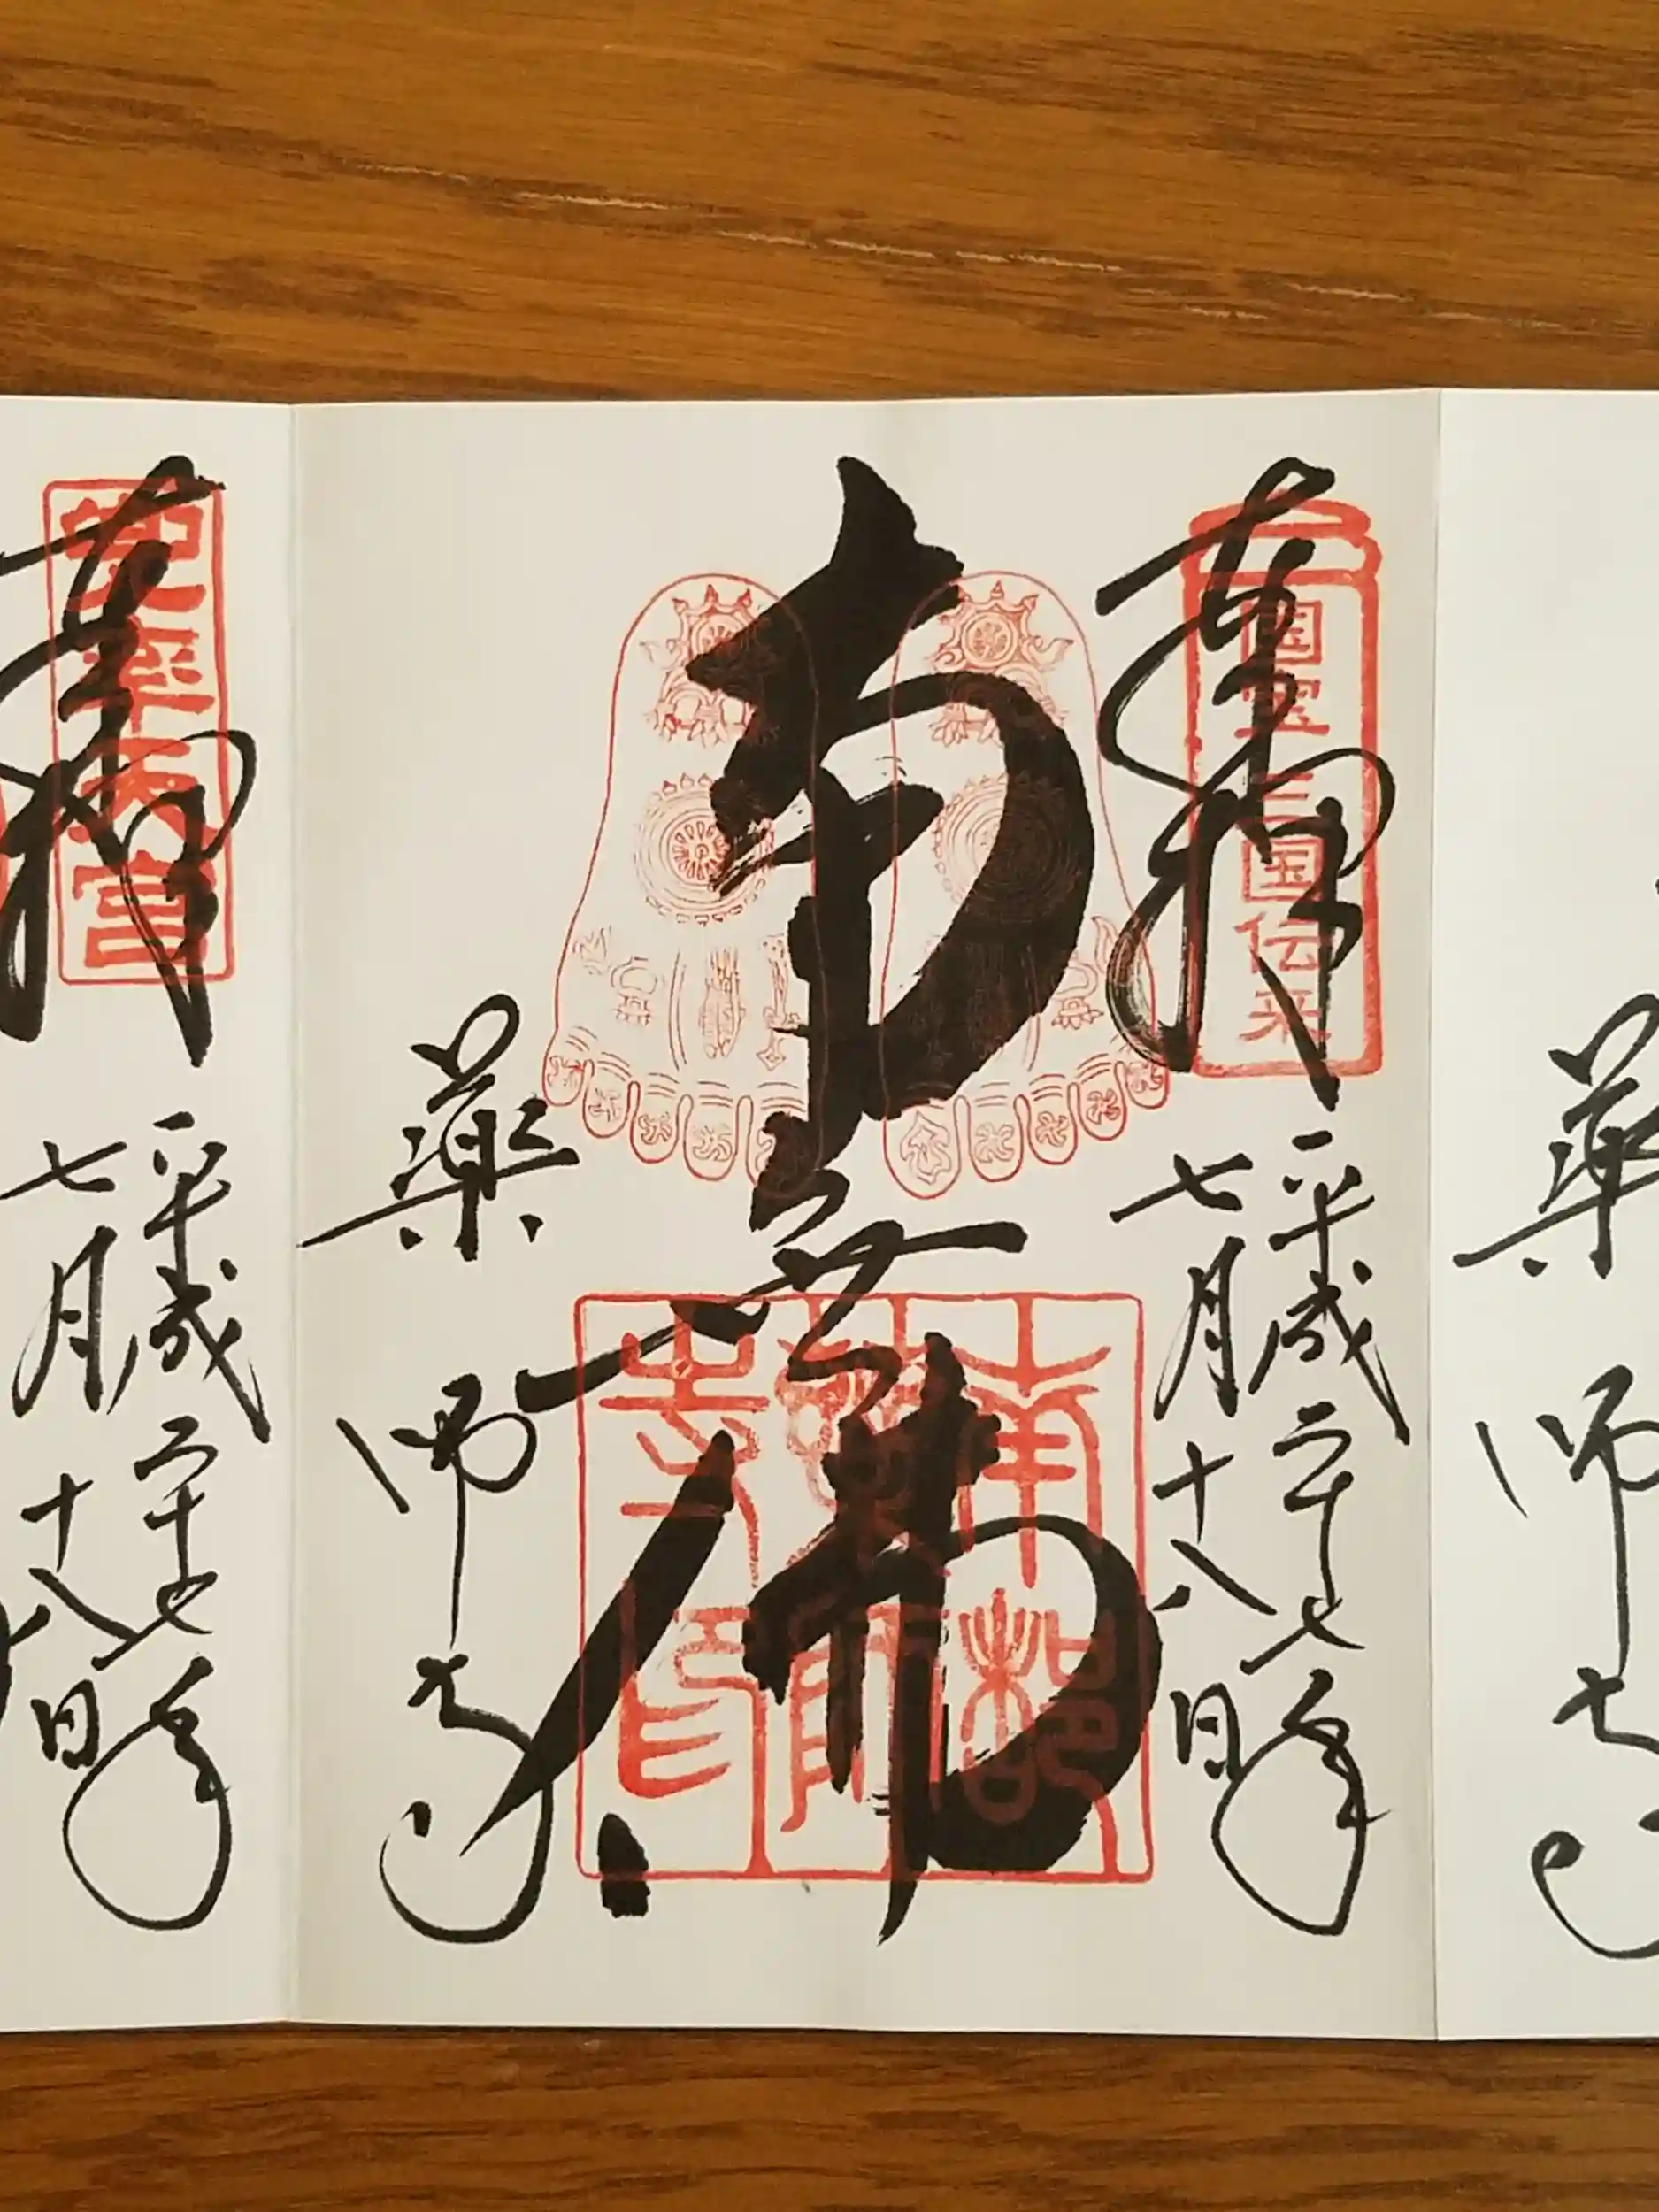 薬師寺
奉拝
国宝三国伝来
平成二十七年
七月十八日
南無佛
南都薬師寺印
薬師寺
奉拝
兜率天宮
平成二十七年
七月十八日